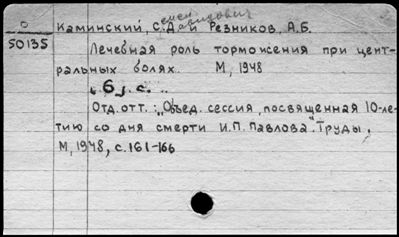 О
Каминский, С. Д. и Резников, А.Б.
Семен Давидович
50135
Лечебная роль торможения при цент-
ральных болях. М, 1948
6 j. c.
Отд. отт.: „Объед. сессия, посвященная 10-ле-
тию со дня смерти И.П. Павлова". Труды.
М, 1948, с. 161-166